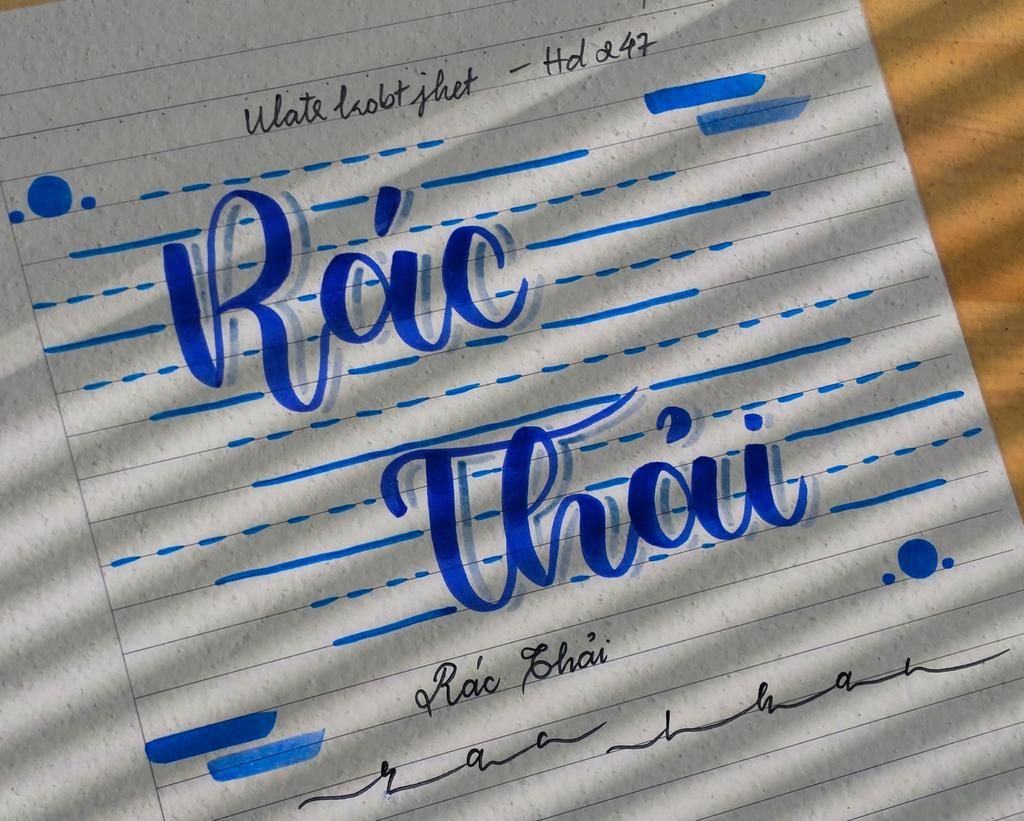 Ulate kobt jhet - Hd 247
Rác
Thải
Rác Thải
r a c t h a i